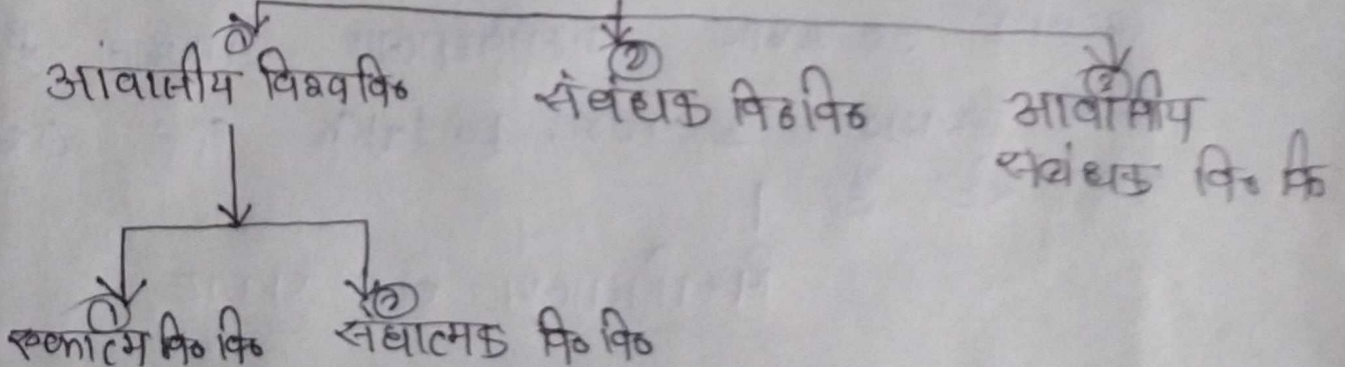 ① ② ③
आंवासीय विश्ववि० संबंधक वि०वि० आवासीय
संबंधक वि० वि
① ②
एकात्म वि० वि० संघात्मक वि० वि०